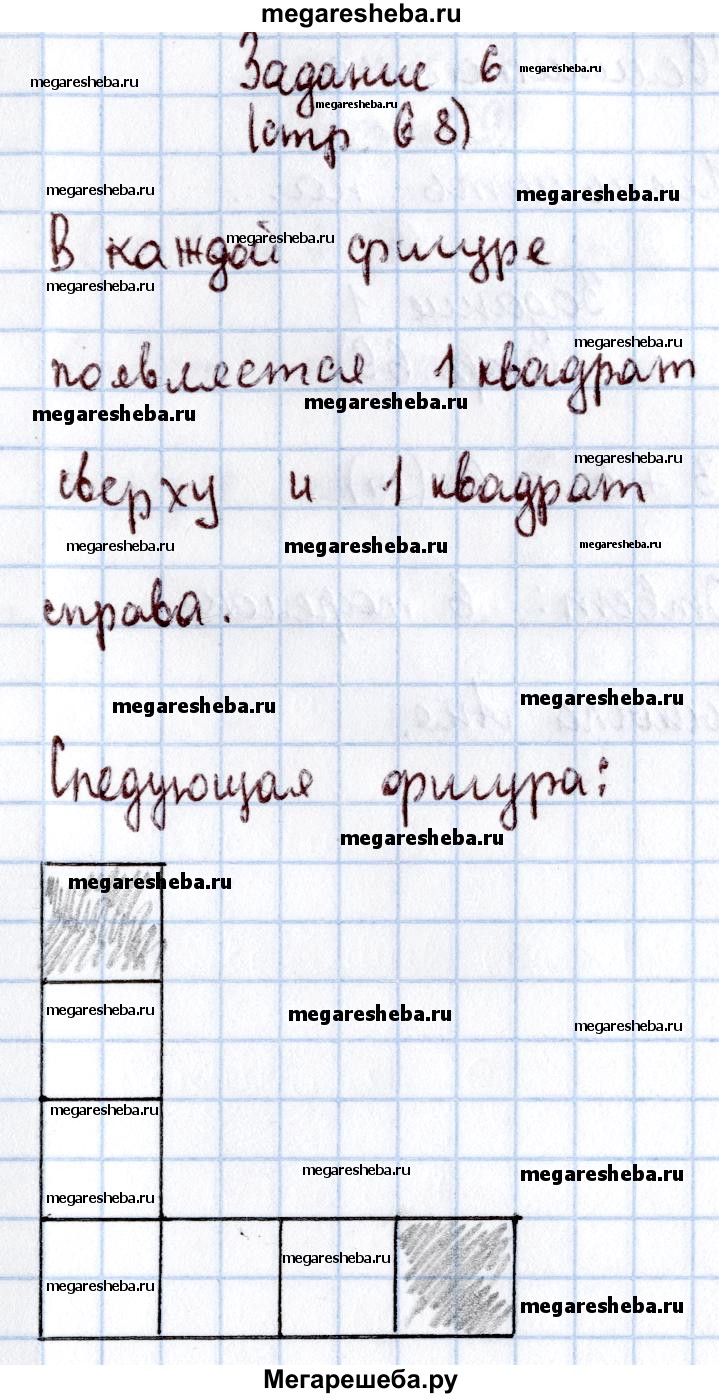 megaresheba.ru
megaresheba.ru
Задание 6
megaresheba.ru
megaresheba.ru
(стр. 68)
megaresheba.ru
megaresheba.ru
megaresheba.ru
В каждой фигуре
megaresheba.ru
megaresheba.ru
появляется 1 квадрат
megaresheba.ru
megaresheba.ru
megaresheba.ru
сверху и 1 квадрат
megaresheba.ru
megaresheba.ru
megaresheba.ru
справа.
megaresheba.ru
megaresheba.ru
Следующая фигура:
megaresheba.ru
megaresheba.ru
megaresheba.ru
megaresheba.ru
megaresheba.ru
megaresheba.ru
megaresheba.ru
megaresheba.ru
megaresheba.ru
megaresheba.ru
megaresheba.ru
megaresheba.ru
Мегарешеба.ру